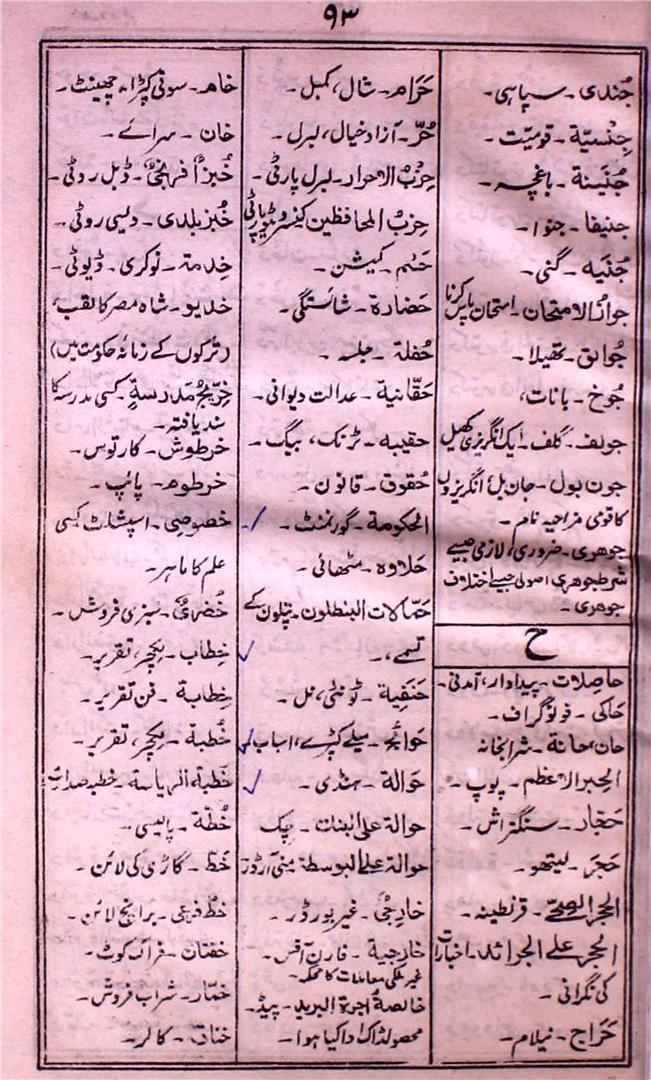 ۹۳
جُندی۔ سپاہی۔
جِنْسیّة۔ قومیّت۔
جُنَیْنة۔ باغچہ۔
جنیفا۔ جنوا۔
جُنَیه۔ گنی۔
جوازُ الامتحان۔ امتحان پاس کرنا
جُوالق۔ تھیلا۔
جُوخ۔ بانات،
جولف۔ گلف۔ ایک انگریزی کھیل
جون بول۔ جان بل، انگریزوں
کا قومی مزاحیہ نام۔
جوھری۔ ضروری، لازمی جیسے
شرط جوھری اصولی جیسے اختلاف
جوھری۔
ح
حاصلات۔ پیداوار، آمدنی۔
حاکی۔ فونوگراف۔
حان، حانة۔ شرابخانہ
الحبر الاعظم۔ پوپ۔
حَجّار۔ سنگتراش۔
حَجَر۔ لیتھو۔
الحجر الصحّے۔ قرنطینہ۔
الحجر علے الجرائد۔ اخبارات
کی نگرانی۔
حَرَاج۔ نیلام۔
حَرَام۔ شال، کمبل۔
حُرّ۔ آزاد خیال، لبرل۔
حِزْبُ الاحرار۔ لبرل پارٹی۔
حِزبُ المحافظین کنسرویٹو پارٹی
حَشم۔ کمیشن۔
حَضارة۔ شائستگی۔
حُفلة۔ جلسہ۔
حَقّانیة۔ عدالت دیوانی۔
حقیبه۔ ٹرنک، بیگ۔
حُقوق۔ قانون۔
الحکومة۔ گورنمنٹ۔
حَلاوہ۔ مٹھائی۔
حَمّالات البنطلون۔ پتلون کے
تسمے۔
حَنَفِیة۔ ٹونٹی، نل۔
حَوائج۔ میلے کپڑے، اسباب
حَوالة۔ ہنڈی۔
حوالة علی البنک۔ چِک
حوالة علے البوسطة منی آرڈر
خارِجیّ۔ غیر بورڈر۔
خارجیة۔ فارن آفس۔
غیر ملکی معاملات کا محکمہ۔
خالصةُ اجرة البرید۔ پیڈ۔
محصولڈاک ادا کیا ہوا۔
خام۔ سوتی کپڑا، چھینٹ۔
خان۔ سرائے۔
خُبزٌ افرنجیٌّ۔ ڈبل روٹی۔
خُبز بلدی۔ دیسی روٹی۔
خِدمة۔ نوکری۔ ڈیوٹی۔
خدیو۔ شاہ مصر کا لقب،
(ترکوں کے زمانہ حکومت میں)
خِرِّیجُ مَدرسةٍ۔ کسی مدرسہ کا
سند یافتہ۔
خرطوش۔ کارتوس۔
خرطوم۔ پائپ۔
خصوصِی۔ اسپشلٹ کسی
علم کا ماہر۔
خُضَریٌّ۔ سبزی فروش۔
خِطاب۔ لیکچر، تقریر۔
خِطابة۔ فن تقریر۔
خُطبة۔ لیکچر، تقریر۔
خطبة الریاسة۔ خطبہ صدارت
خُطّة۔ پالیسی۔
خَطّ۔ گاڑی کی لائن۔
خطّ فرعی۔ برانچ لائن۔
خفتان۔ فراک کوٹ۔
خَمّار۔ شراب فروش۔
خناق۔ کالر۔